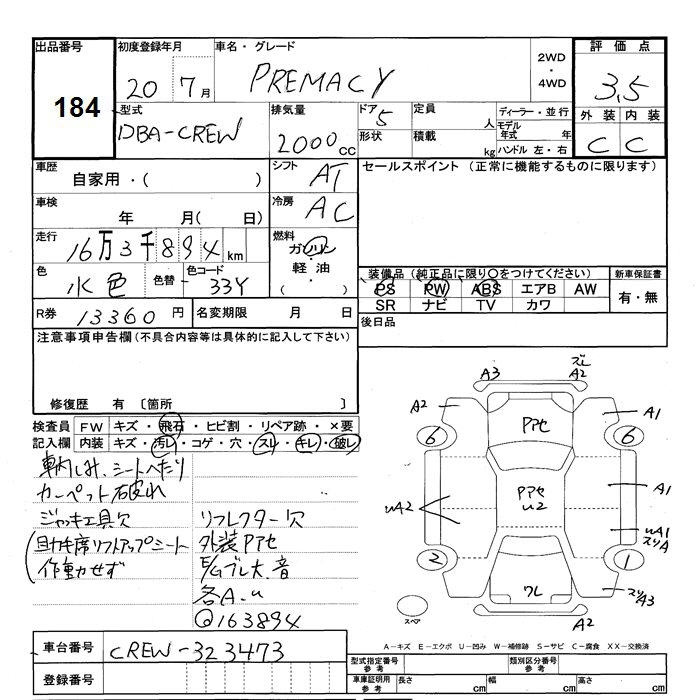 出品番号 初度登録年月 車名・グレード 2WD・4WD 評価点
184 20 7月 PREMACY 3.5
型式 排気量 ドア 5 定員 人 ディーラー・並行 外装 内装
DBA-CREW 2000CC 形状 積載 kg モデル年式 年 C C
ハンドル 左・右
車歴 シフト AT セールスポイント (正常に機能するものに限ります)
自家用・( )
車検 年 月( 日) 冷房 AC
走行 16万3千894km 燃料 ガソリン・軽油・( )
色 水色 色替 色コード 33Y
装備品(純正品に限り○をつけてください) 新車保証書
PS PW ABS エアB AW 有・無
SR ナビ TV カワ
R券 13360円 名変期限 月 日 後日品
注意事項申告欄(不具合内容等は具体的に記入して下さい)
修復歴 有 〔箇所 〕
検査員 FW キズ・飛石・ヒビ割・リペア跡・×要
記入欄 内装 キズ・汚レ・コゲ・穴・スレ・キレ・破レ
車内しみ、シートへたり
カーペット破れ
ジャッキ工具欠 リフレクター欠
(助手席リフトアップシート 外装Pアセ
作動せず E/Gブレ大、音
各A.u
◎163894
A3 ズレ A2
A2 A1
6 Pアセ 6
uA2 Pアセ u2 A1
uA1 スリA
2 ワレ 1
スリA3
スペア A2
A-キズ E-エクボ U-凹み W-補修跡 S-サビ C-腐食 XX-交換済
車台番号 CREW-323473
登録番号
型式指定番号 参考 類別区分番号 参考
車庫証明用 参考 長さ cm 幅 cm 高さ cm